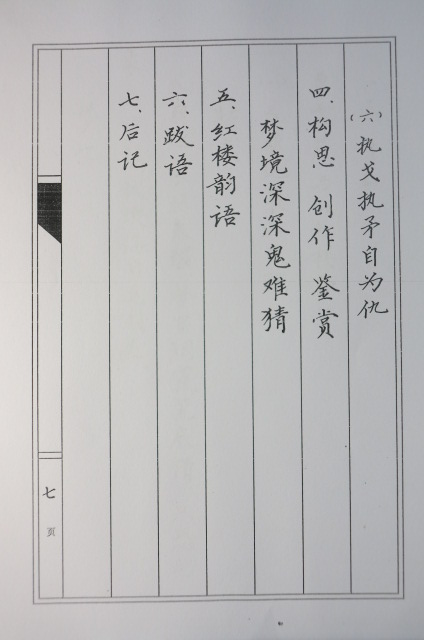 (六)执戈执矛自为仇
四、构思 创作 鉴赏
梦境深深鬼难猜
五、红楼韵语
六、跋语
七、后记
七页